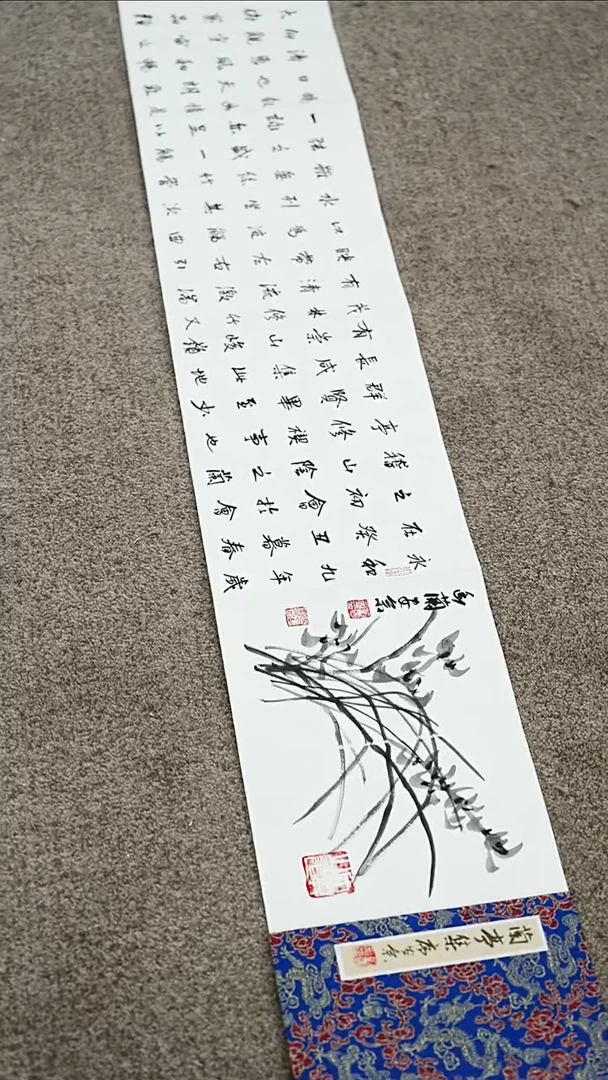 蘭亭集序
永和九年歲
在癸丑暮春
之初會於會
稽山陰之蘭
亭修禊事也
群賢畢至少
長咸集此地
有崇山峻領
茂林修竹又
有清流激湍
映帶左右引
以為流觴曲
水列坐其次
雖無絲竹管
弦之盛一觴
一詠亦足以
暢敘幽情是
日也天朗氣
清惠風和暢
仰觀宇宙之
大俯察品類